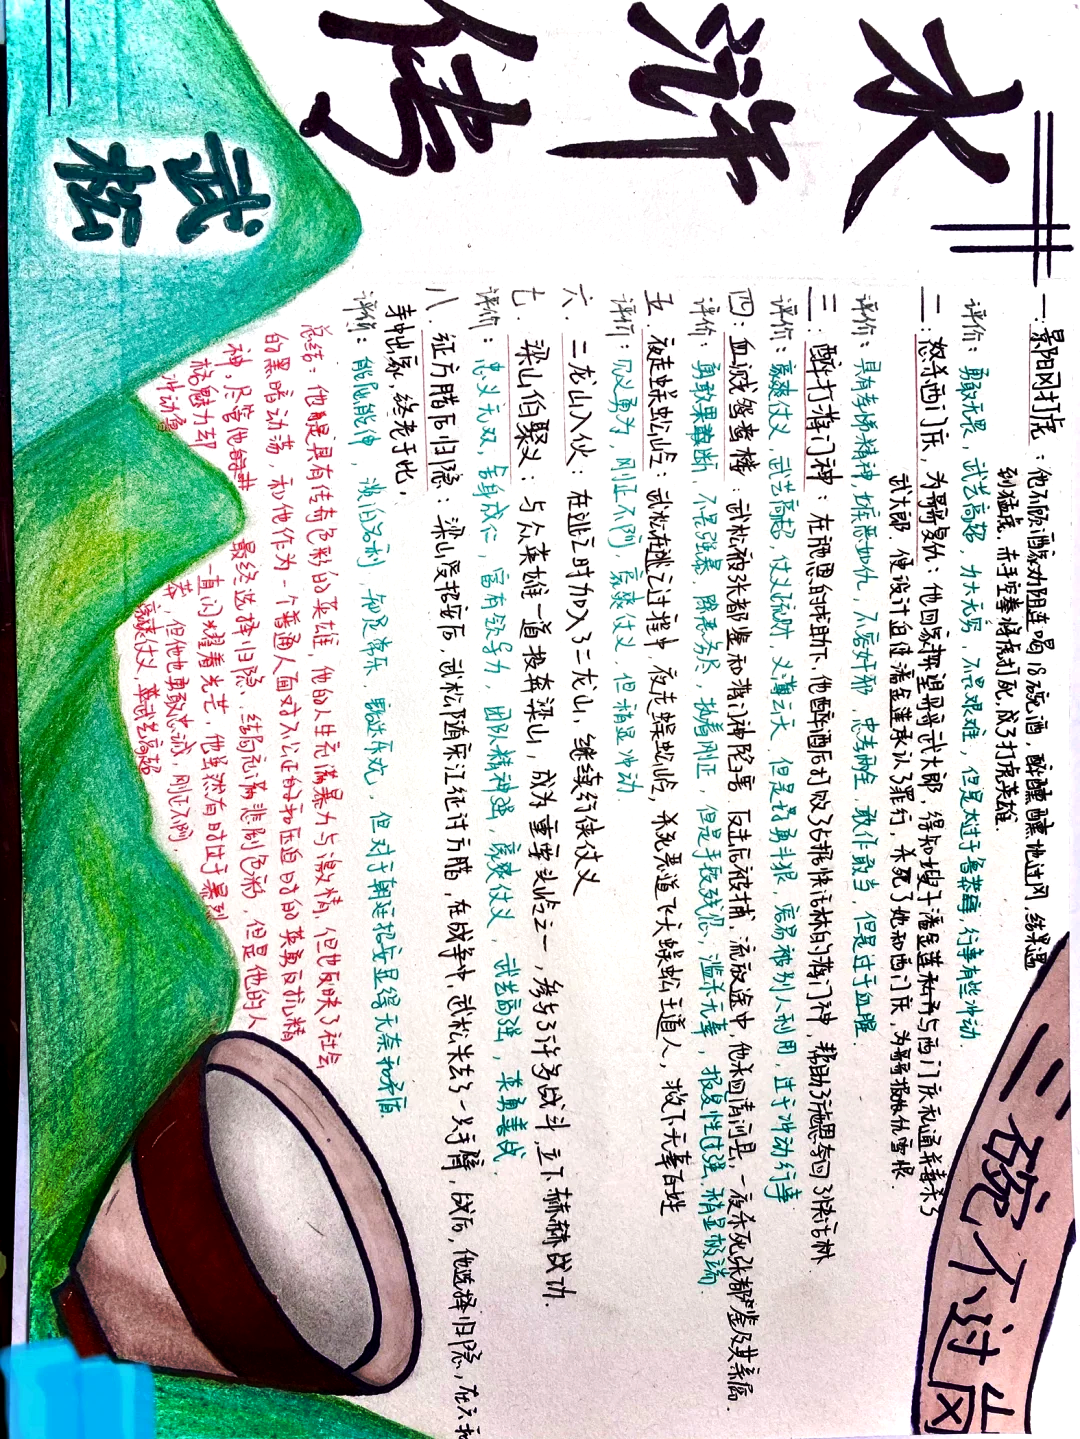 水浒传
武松
三碗不过岗
一:景阳冈打虎:他不顾酒家劝阻连喝18碗酒,醉醺醺地过冈,结果遇
到猛虎,赤手空拳将虎打死,成了打虎英雄.
评价:勇敢无畏,武艺高超,力大无穷,不畏艰难,但是太过于鲁莽,行事有些冲动
二:怒杀西门庆,为哥哥复仇:他回家探望哥哥武大郎,得知嫂子潘金莲和西门庆私通并毒杀了
武大郎,便设计迫使潘金莲承认了罪行,杀死了她和西门庆,为哥哥报仇雪恨.
评价:具有孝悌精神,嫉恶如仇,不容奸邪,忠孝两全,敢作敢当,但是过于血腥.
三:醉打蒋门神:在施恩的求助下,他醉酒后打败了占据快活林的蒋门神,帮助施恩夺回了快活林.
评价:豪爽仗义,武艺高超,仗义疏财,义薄云天,但是好勇斗狠,容易被别人利用,过于冲动行事
四:血溅鸳鸯楼:武松被张都监和蒋门神陷害,反击后被捕,流放途中,他杀回清河县,一夜杀死张都监及其亲属.
评价:勇敢果断,不畏强暴,除恶务尽,执着刚正,但是手段残忍,滥杀无辜,报复性过强,稍显极端.
五.夜走蜈蚣岭:武松在逃亡过程中,夜走蜈蚣岭,杀死恶道飞天蜈蚣王道人,救下无辜百姓
评价:见义勇为,刚正不阿,豪爽仗义,但稍显冲动.
六.二龙山入伙:在逃亡时加入了二龙山,继续行侠仗义
七.梁山伯聚义:与众英雄一道投奔梁山,成为重要头领之一,参与了许多战斗,立下赫赫战功.
评价:忠义无双,舍身成仁,富有领导力,团队精神强,豪爽仗义,武艺高强,英勇善战.
八.征方腊后归隐:梁山受招安后,武松随宋江征讨方腊,在战争中,武松失去了一只手臂,战后,他选择归隐,在六和
寺出家,终老于此.
评价:能屈能伸,淡泊名利,知足常乐,豁达乐观,但对于朝廷招安显得无奈和矛盾
总结:他是具有传奇色彩的英雄,他的人生充满暴力与激情,但也反映了社会
的黑暗动荡,和他作为一个普通人面对不公正的和压迫时的英勇反抗精
神,尽管他的 最终选择归隐,结局充满悲剧色彩,但是他的人
格魅力却一直闪耀着光芒,他虽然有时过于暴烈
冲动,但他也勇敢忠诚,刚正不阿
豪爽仗义,武艺高超